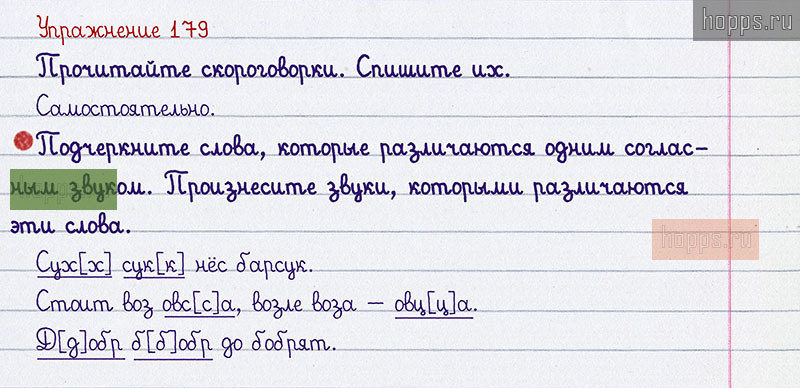 hopps.ru
Упражнение 179
Прочитайте скороговорки. Спишите их.
Самостоятельно.
Подчеркните слова, которые различаются одним соглас-
ным звуком. Произнесите звуки, которыми различаются
эти слова.
hopps.ru
Сух[х] сук[к] нёс барсук.
Стоит воз овс[с]а, возле воза – овц[ц]а.
Д[д]обр б[б]обр до бобрят.